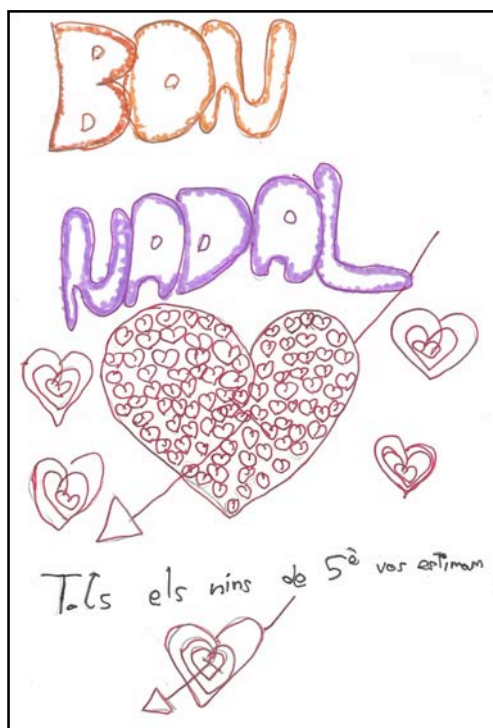 BON
NADAL
Tots els nins de 5è vos estimam